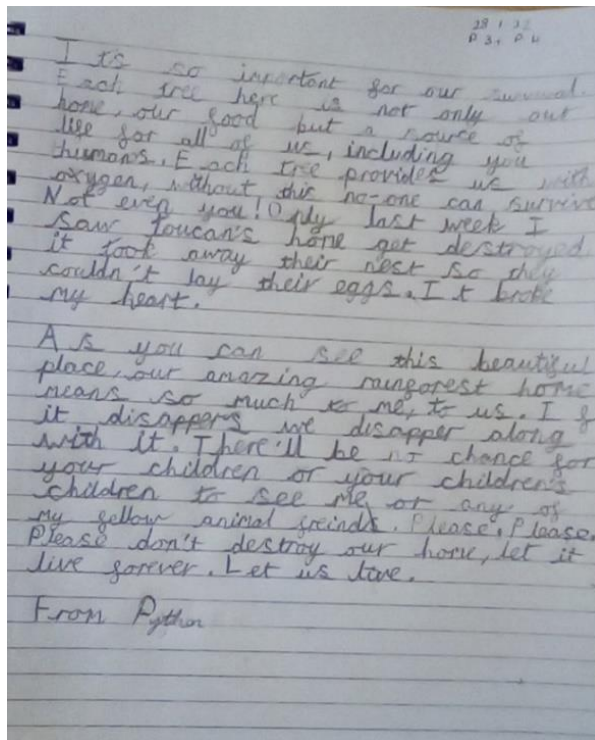 28 1 22
P 3+ P 4
Its so important for our survival.
Each tree here is not only out
home, our food but a source of
life for all of us, including you
humans. Each tree provides us with
oxygen, without this no-one can survive
Not even you! Only last week I
saw Toucan's home get destroyed
it took away their nest so they
couldn't lay their eggs. It broke
my heart.
As you can see this beautiful
place, our amazing rainforest home
means so much to me, to us. If
it disapper's we disapper along
with it. There'll be no chance for
your children or your children's
children to see me, or any of
my fellow animal freinds. Please, Please,
Please don't destroy our home, let it
live forever. Let us live.
From Python